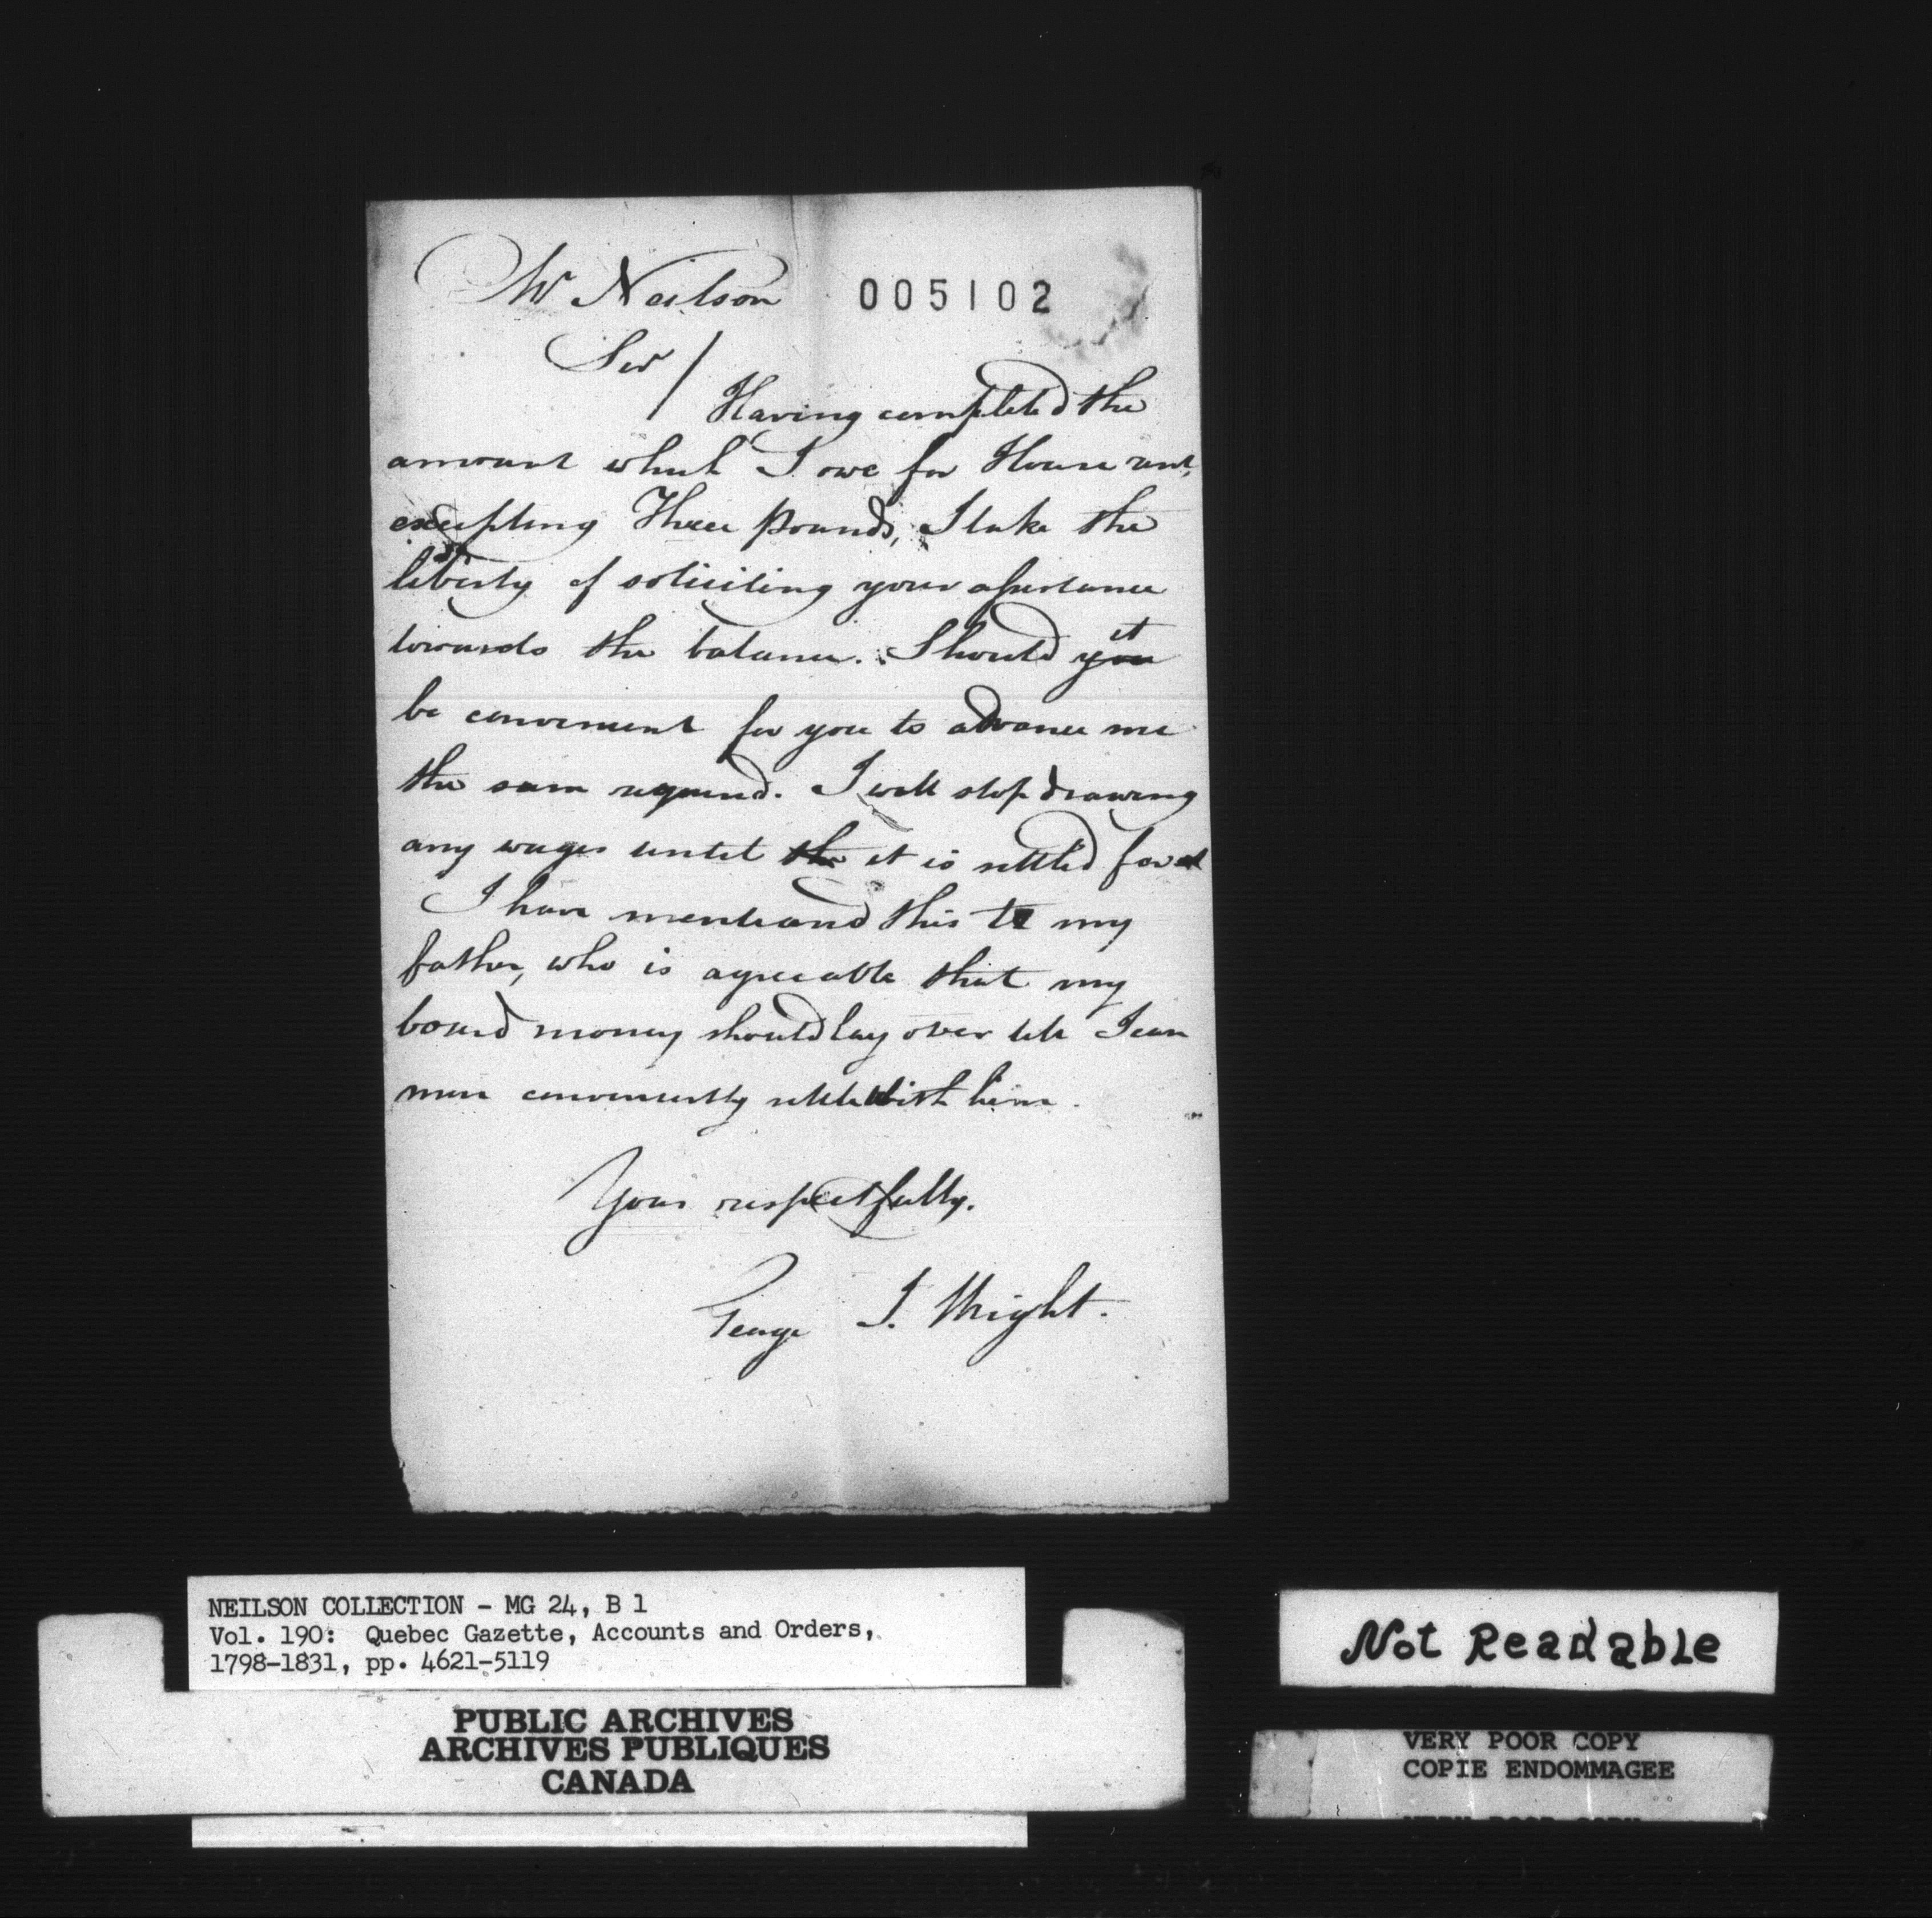 Mr Neilson 005102
Sir /
Having completed the
amount which I owe for House rent,
excepting Three pounds, I take the
liberty of soliciting your assistance
towards the balance. Should you it
be convenient for you to advance me
the sum required. I will stop drawing
any wages until the it is settled for
I have mentioned this to my
father, who is agreeable that my
board money should lay over till I can
more conveniently settle with him.
Yours respectfully.
George J. Wright.
NEILSON COLLECTION - MG 24, B 1
Vol. 190: Quebec Gazette, Accounts and Orders,
1798-1831, pp. 4621-5119
PUBLIC ARCHIVES
ARCHIVES PUBLIQUES
CANADA
Not Readable
VERY POOR COPY
COPIE ENDOMMAGEE